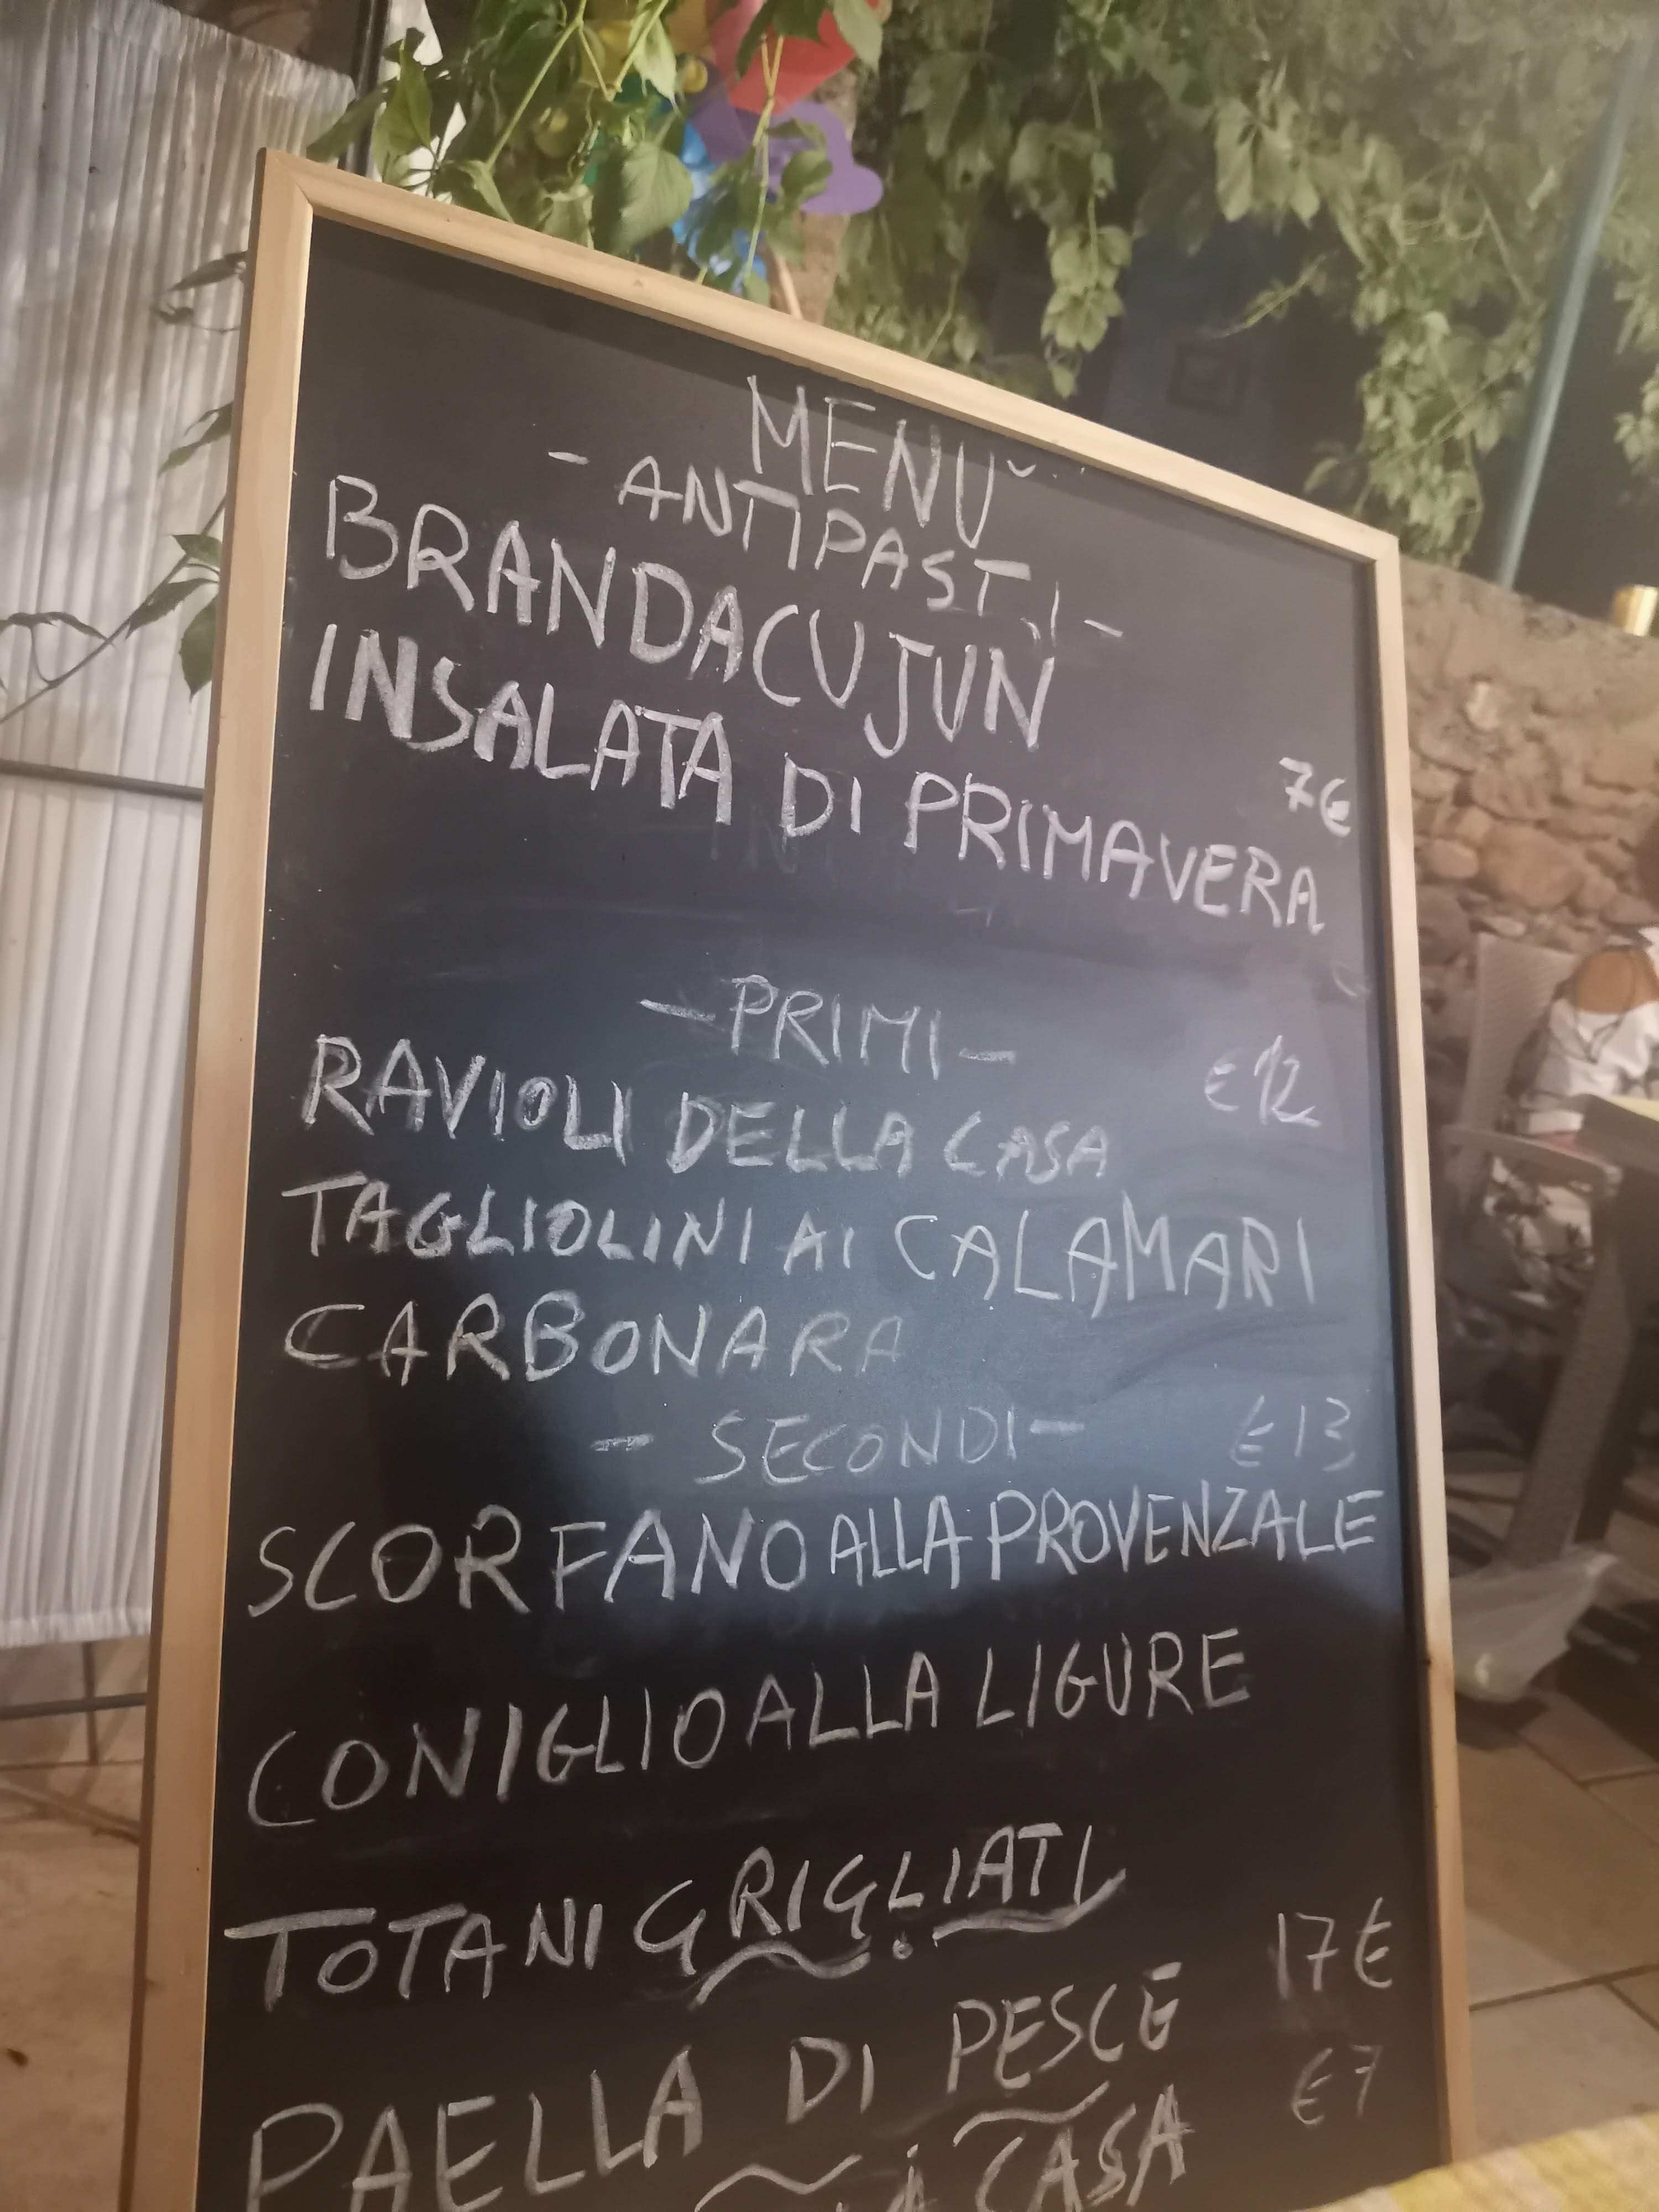 MENÙ
- ANTIPASTI -
BRANDACUJUN
7€
INSALATA DI PRIMAVERA
- PRIMI -
€ 12
RAVIOLI DELLA CASA
TAGLIOLINI AI CALAMARI
CARBONARA
- SECONDI -
€ 13
SCORFANO ALLA PROVENZALE
CONIGLIO ALLA LIGURE
TOTANI GRIGLIATI
17€
PAELLA DI PESCE
€ 7
CASA